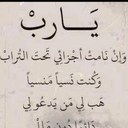 يَــاربْ
وَإنْ نَامتْ أجْزَائي تَحتَ التُرابْ
وَكُنت نَسياً مَنسياً
هَب لِي مَن يَدعُو لِي